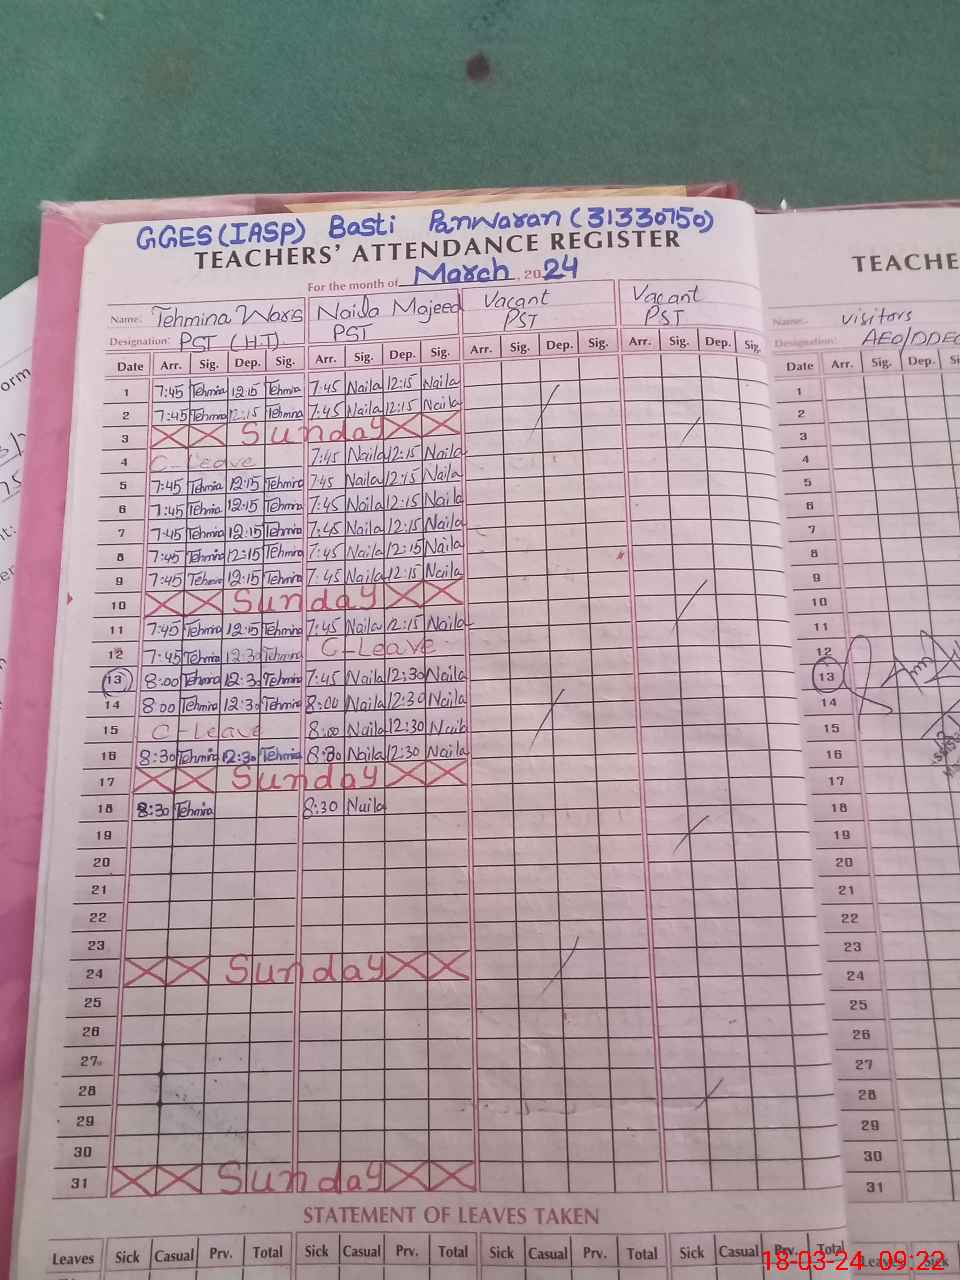 GGES (IASP) Basti Panwaran (31330750)
TEACHERS' ATTENDANCE REGISTER
For the month of March, 2024
Name: Tehmina Waris Naila Majeed Vacant Vacant
Designation: PST (H.T) PST PST PST
Date Arr. Sig. Dep. Sig. Arr. Sig. Dep. Sig. Arr. Sig. Dep. Sig. Arr. Sig. Dep. Sig.
1 7:45 Tehmina 12:15 Tehmina 7:45 Naila 12:15 Naila
2 7:45 Tehmina 12:15 Tehmina 7:45 Naila 12:15 Naila
3 Sunday
4 C-Leave 7:45 Naila 12:15 Naila
5 7:45 Tehmina 12:15 Tehmina 7:45 Naila 12:15 Naila
6 7:45 Tehmina 12:15 Tehmina 7:45 Naila 12:15 Naila
7 7:45 Tehmina 12:15 Tehmina 7:45 Naila 12:15 Naila
8 7:45 Tehmina 12:15 Tehmina 7:45 Naila 12:15 Naila
9 7:45 Tehmina 12:15 Tehmina 7:45 Naila 12:15 Naila
10 Sunday
11 7:45 Tehmina 12:15 Tehmina 7:45 Naila 12:15 Naila
12 7:45 Tehmina 12:30 Tehmina C-Leave
13 8:00 Tehmina 12:30 Tehmina 7:45 Naila 12:30 Naila
14 8:00 Tehmina 12:30 Tehmina 8:00 Naila 12:30 Naila
15 C-Leave 8:00 Naila 12:30 Naila
16 8:30 Tehmina 12:30 Tehmina 8:30 Naila 12:30 Naila
17 Sunday
18 8:30 Tehmina 8:30 Naila
19
20
21
22
23
24 Sunday
25
26
27
28
29
30
31 Sunday
STATEMENT OF LEAVES TAKEN
Leaves Sick Casual Prv. Total Sick Casual Prv. Total Sick Casual Prv. Total Sick Casual Prv. Total
TEACHE
Name: Visitors
Designation: AEO/DDEO
Date Arr. Sig. Dep. Si
1
2
3
4
5
6
7
8
9
10
11
12
13
14
15
16
17
18
19
20
21
22
23
24
25
26
27
28
29
30
31
Leaves Sick
18-03-24 09:22